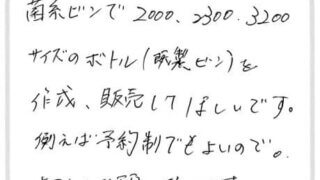 菌糸ビンで 2000、2300、3200
サイズのボトル(既製ビン)を
作成、販売してほしいです。
例えば予約制でもよいので。